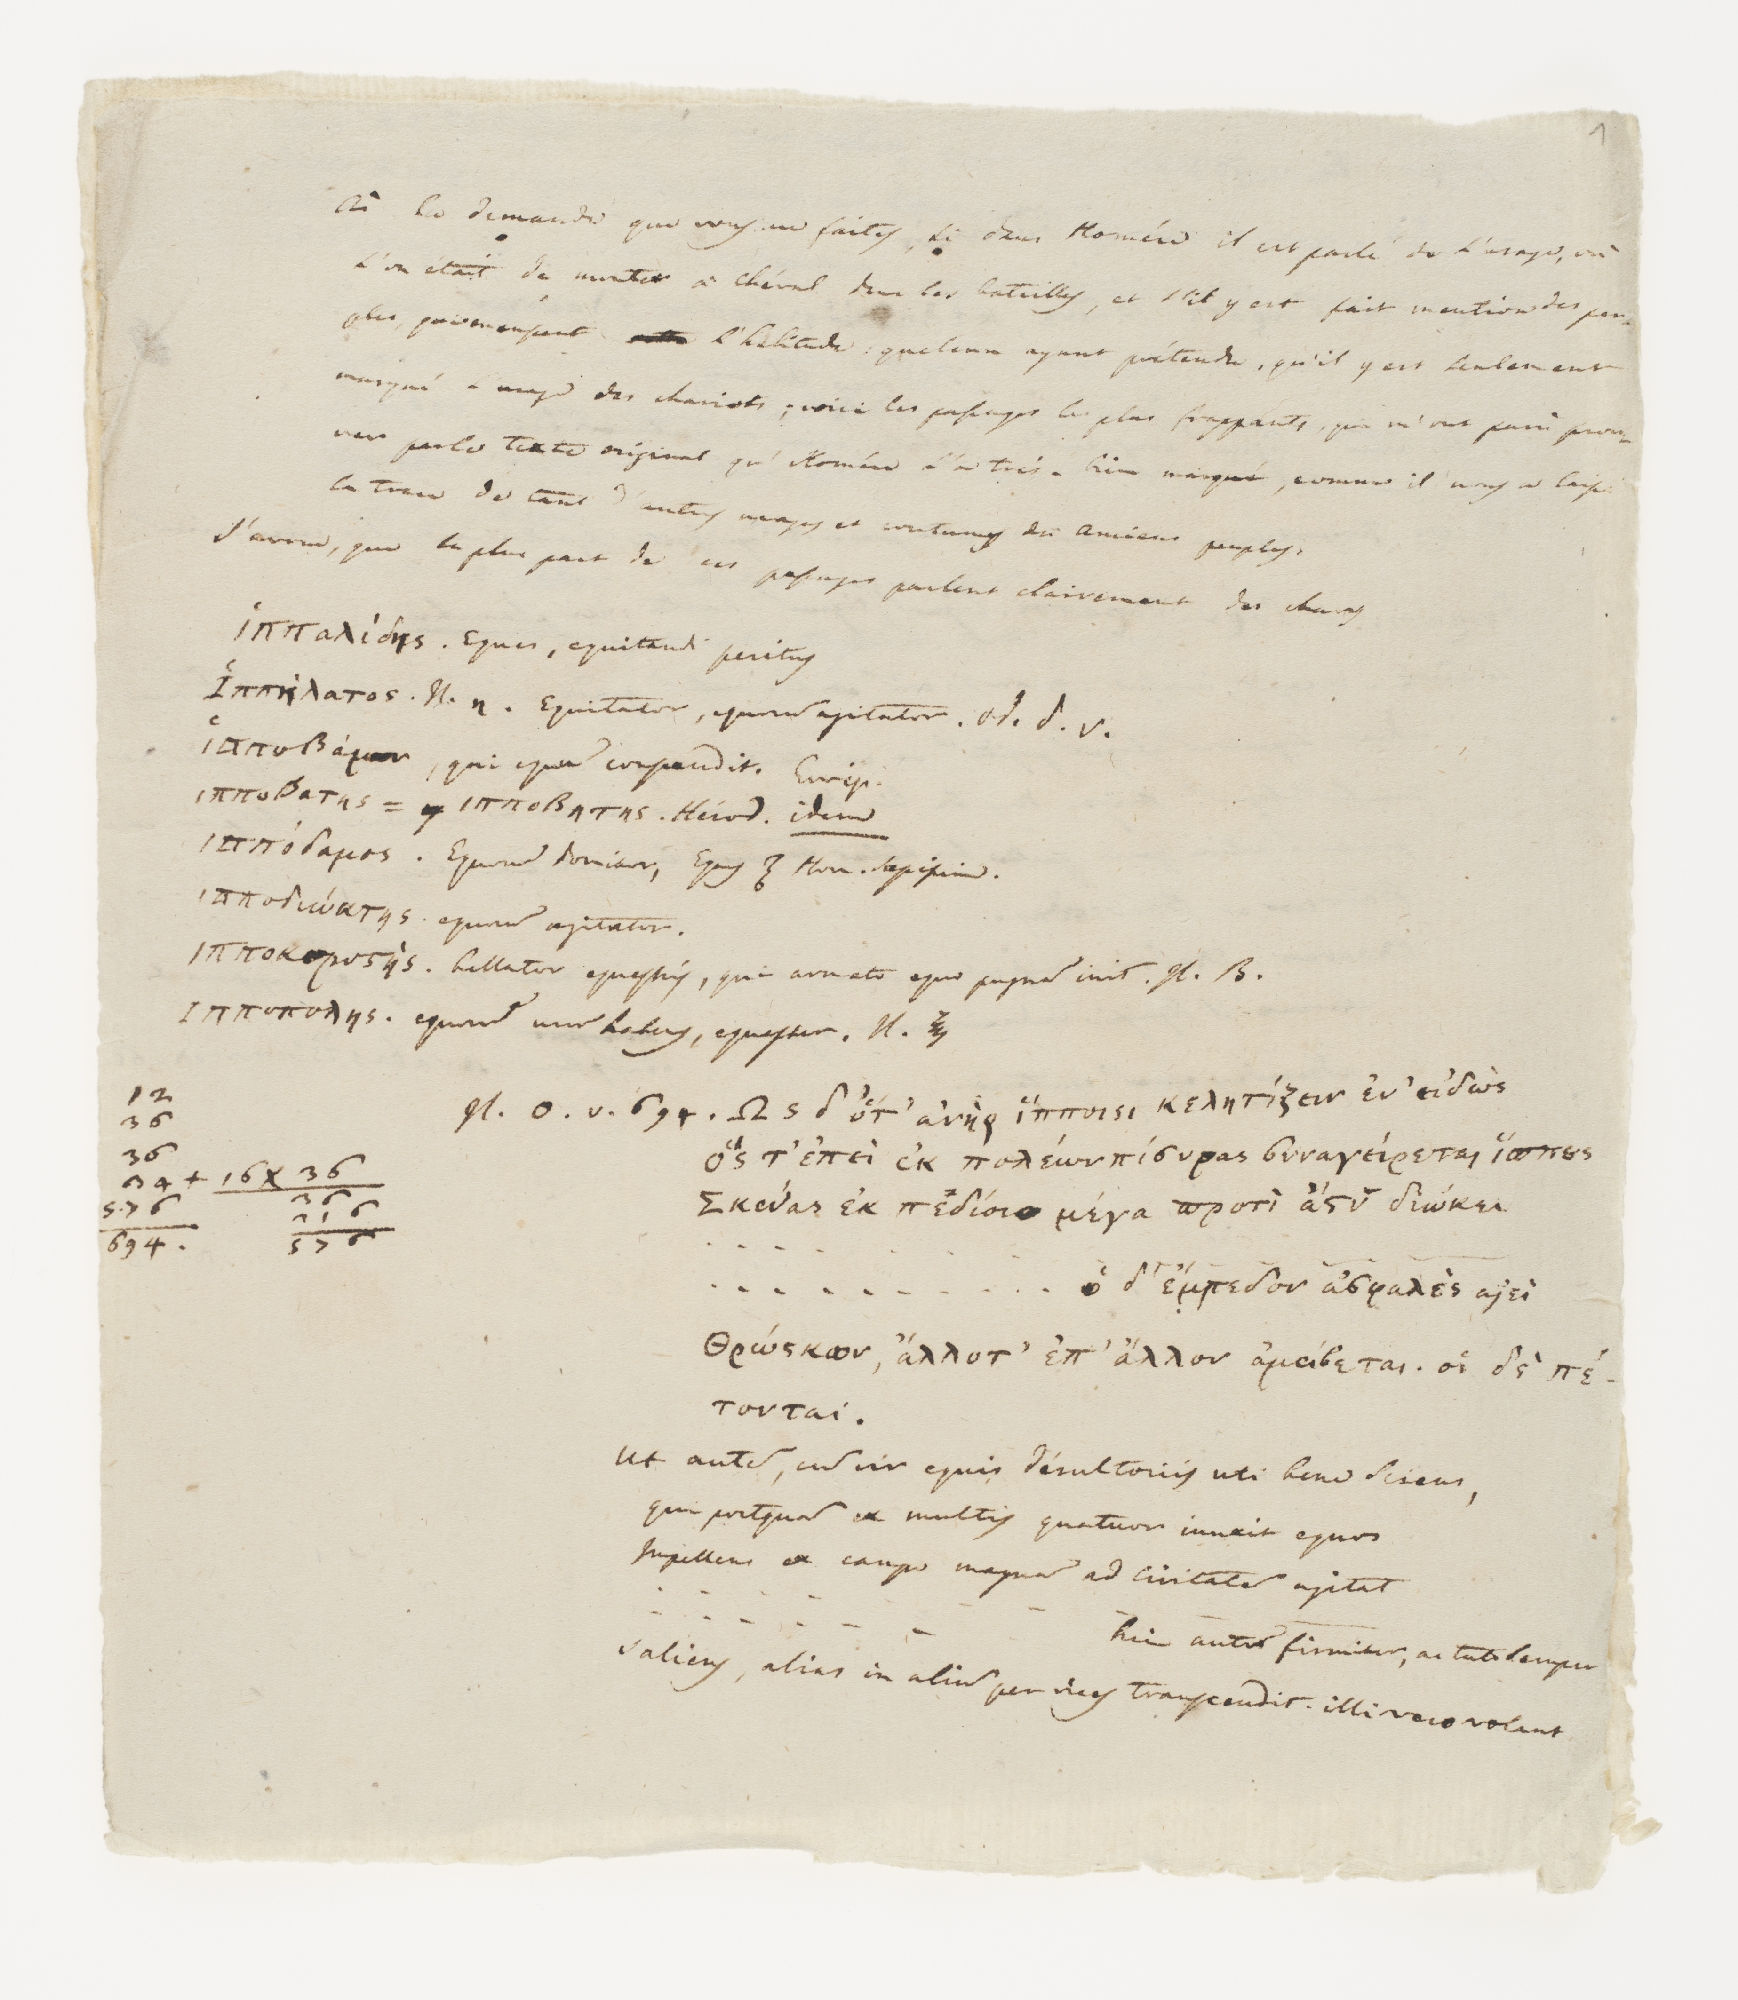 1
A la demande que vous me faites, si dans Homére il est parlé de l'usage, où
l'on était de monter à chéval dans les batailles, et s'il y est fait mention des peu-
ples, qui en eussent l'habitude; quelcun ayant prétendu, qu'il y est seulement
marqué l'usage des chariots; voici les passages les plus frappants, qui m'ont paru prou-
ver par le texte original qu'Homére l'a trés-bien marqué, comme il nous a laissé
la trace de tant d'autres usages et coutumes des anciens peuples.
J'avoue, que la plus part de ces passages parlent clairement des chars
ἱππαλίδης. Eques, equitandi peritus
Ἱππήλατος. Il. η. Equitator, equorū agitator. Od. δ. v.
ἱπποβάμων, qui equū conscendit. Eurip.
ιπποβατης = ιπποβητης. Hérod. idem
ιππόδαμος. Equorū domitor, Eques Hom. sæpissime.
ιπποδιώκτης. equorū agitator.
ιπποκορυςής. bellator equestris, qui armato equo pugnā init. Il. B.
Ιπποπολης. equorū curā habens, equester. Il.
12
36
36
34 + 16 x 36
576 36
694. 216
576
Il. O. v. 694. Ως δ' ὅτ' ἀνὴρ ἵπποισι κελητίζειν ἐν' εἰδὼς
ὅς τ' ἐπεὶ ἐκ πολέων πίσυρας συναγείρεται ἵππες
Σκεύας ἐκ πεδίοιο μέγα προτὶ ἄςυ διώκει
. . . . . . . . . .
. . . . . . . . . . ὁ δ' ἔμπεδον ἀσφαλὲς αἰεὶ
Θρώςκων, ἄλλοτ' ἐπ' ἄλλον ἀμείβεται. οἱ δὲ πέ-
τονται.
Ut autē, cū vir equis désultoriis uti bene sciens,
qui postquā ex multis quatuor iunxit equos
Impellens ex campo magnā ad civitatē agitat
. . . . . . . . . .
. . . . . . hic autē firmiter, ac tuto semper
Saliens, alias in aliū per vices transcendit. illi vero volant